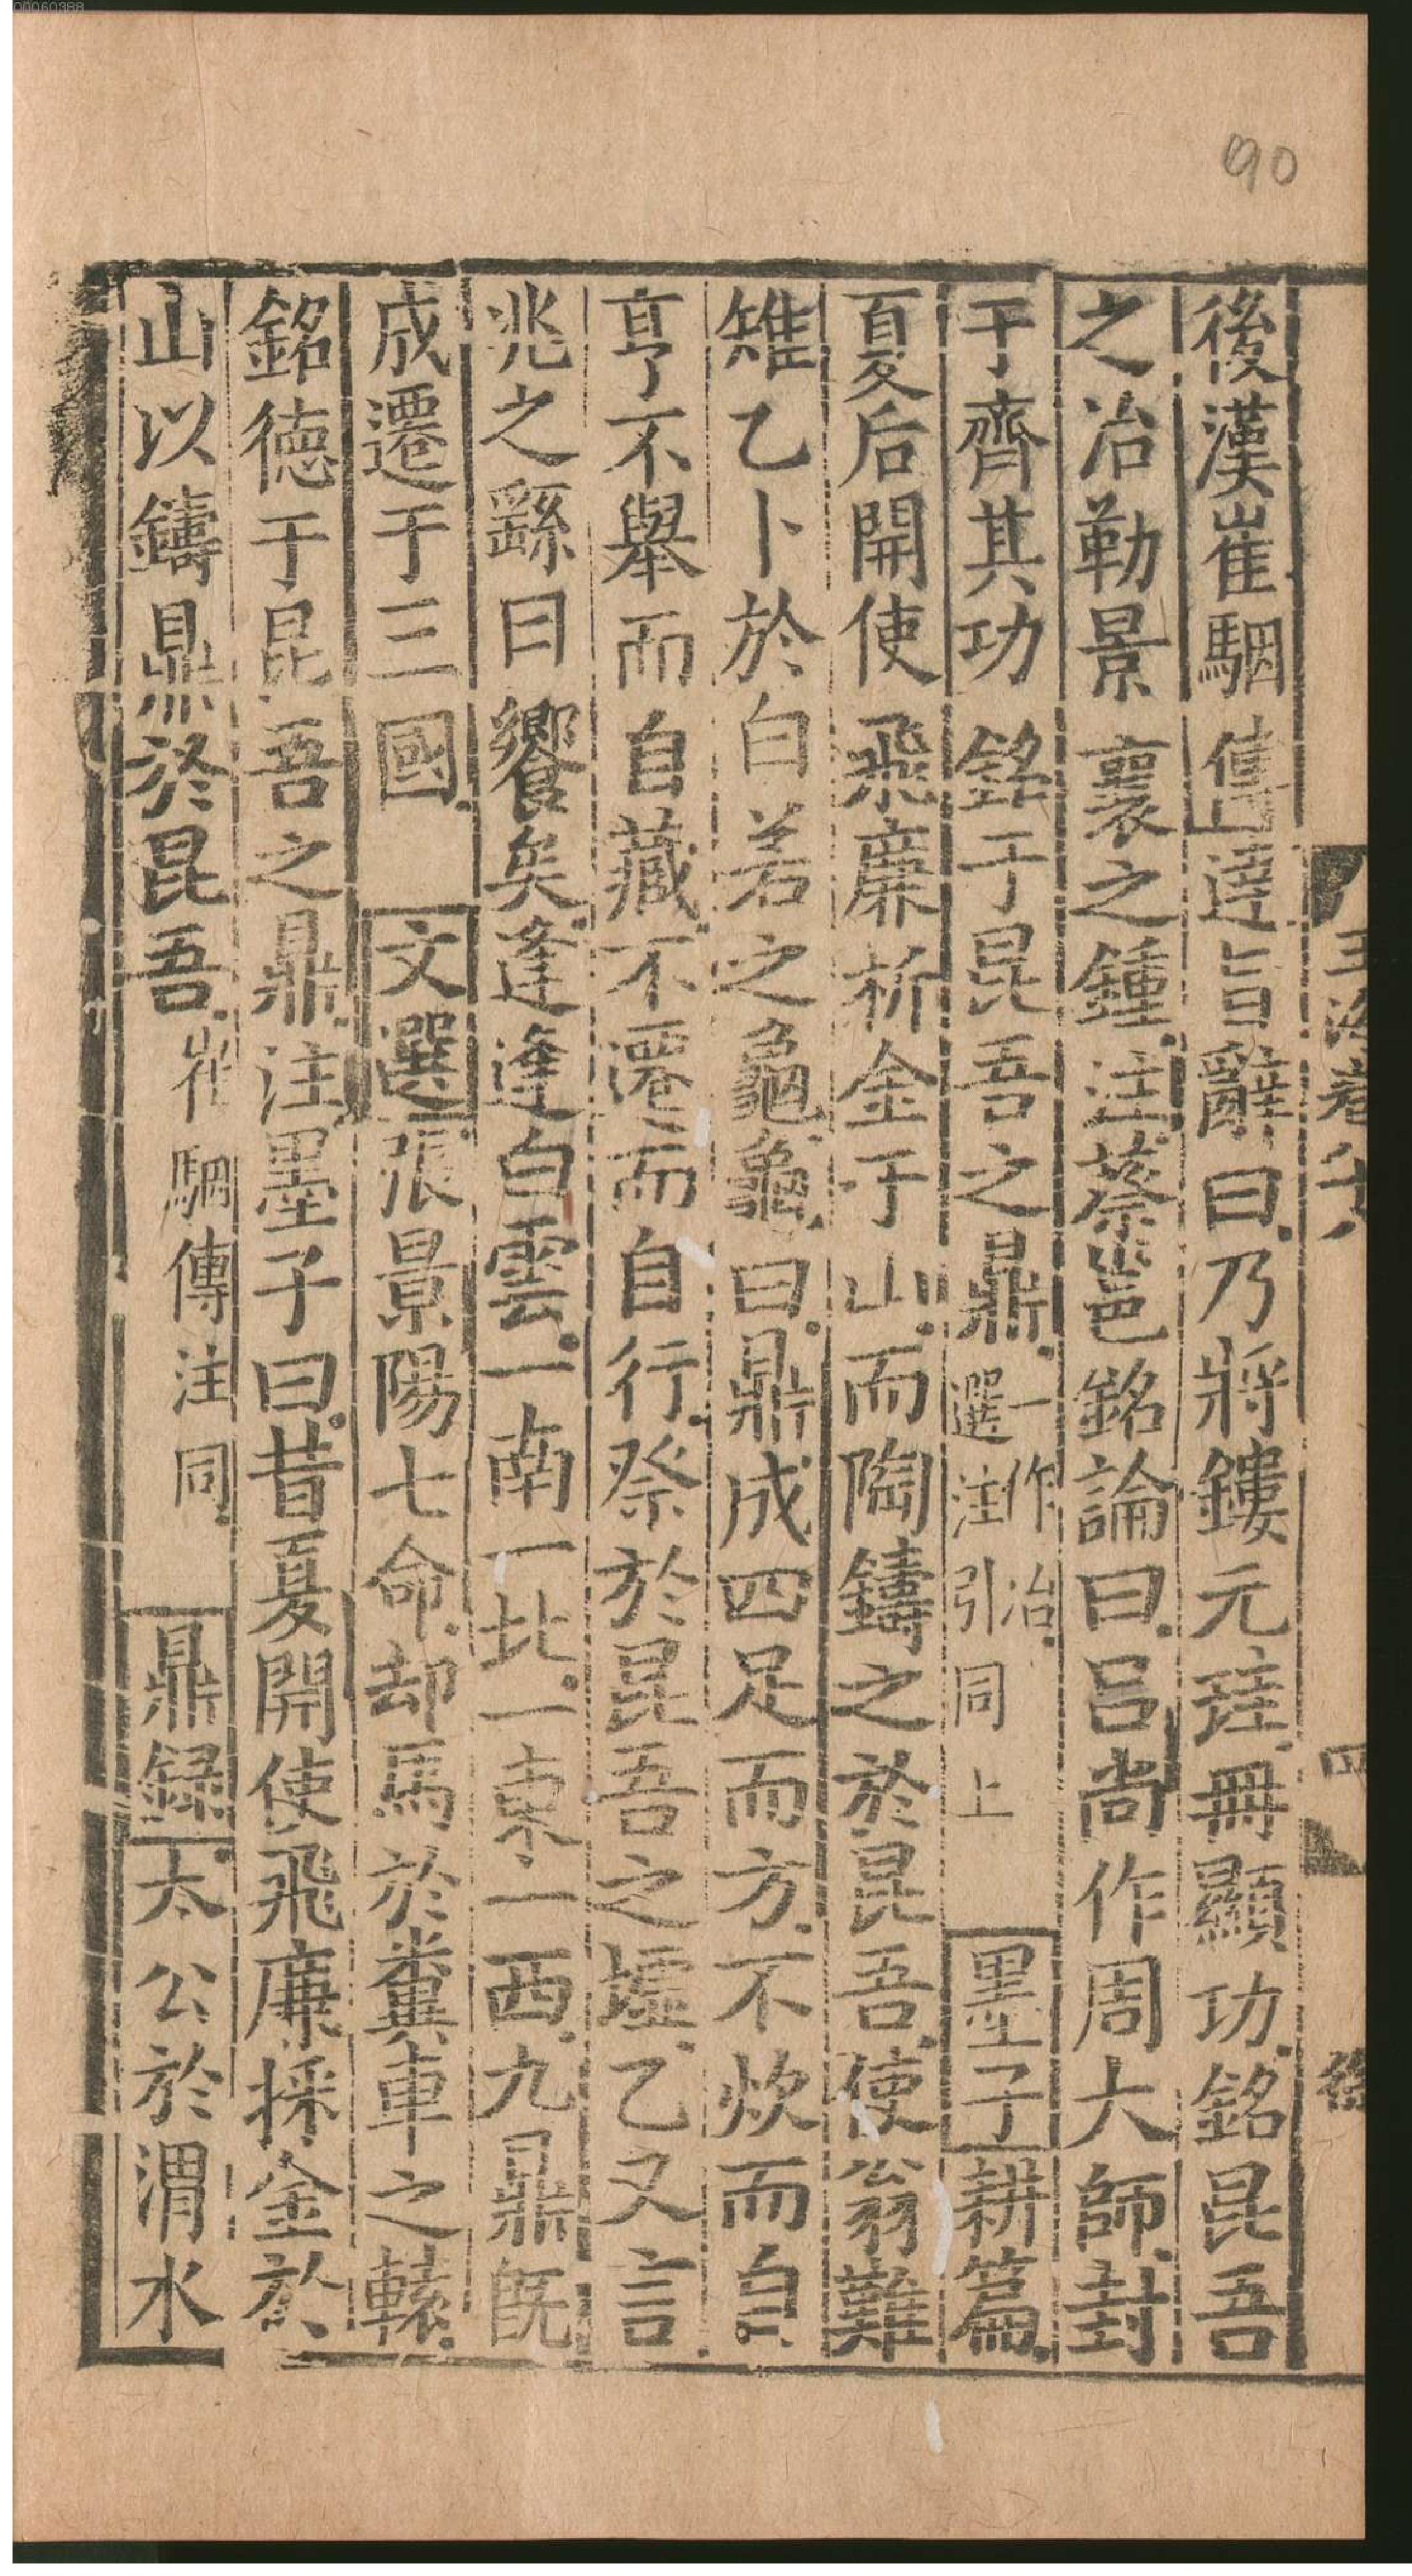 00060388
90
後漢崔駰傳達旨辭曰乃將鏤元珪冊顯功銘昆吾
之冶勒景襄之鍾注蔡邕銘論曰呂尚作周大師封
于齊其功銘于昆吾之鼎一作冶選注引同上墨子耕篇
夏后開使飛廉析金于山而陶鑄之於昆吾使翁難
雉乙卜於白若之龜龜曰鼎成四足而方不炊而自
亨不舉而自藏不遷而自行祭於昆吾之墟乙又言
兆之繇曰饗矣逢逢白雲一南一北一東一西九鼎旣
成遷于三國文選張景陽七命却馬於糞車之轅
銘德于昆吾之鼎注墨子曰昔夏開使飛廉採金於
山以鑄鼎於昆吾崔駰傳注同鼎録太公於渭水